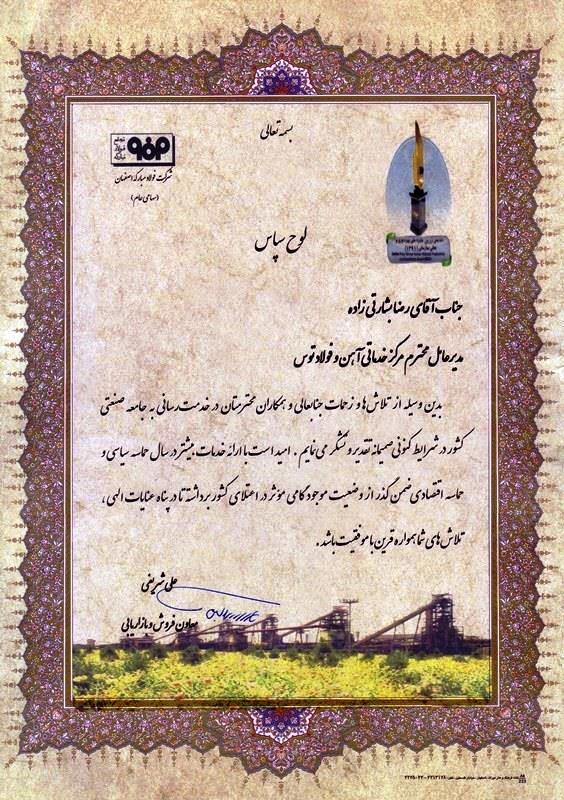 بسمه تعالی
شرکت فولاد مبارکه اصفهان
(سهامی عام)
لوح سپاس
جناب آقای رضا بشارتی زاده
مدیرعامل محترم مرکز خدماتی آهن و فولاد توس
بدین وسیله از تلاش‌ها و زحمات جنابعالی و همکاران محترمتان در خدمت رسانی به جامعه صنعتی
کشور در شرایط کنونی صمیمانه تقدیر و تشکر می نمایم . امید است با ارائه خدمات بیشتر در سال حماسه سیاسی و
حماسه اقتصادی ضمن گذر از وضعیت موجود گامی مؤثر در اعتلای کشور برداشته تا در پناه عنایات الهی ،
تلاش های شما همواره قرین با موفقیت باشد .
علی شریفی
معاون فروش و بازاریابی